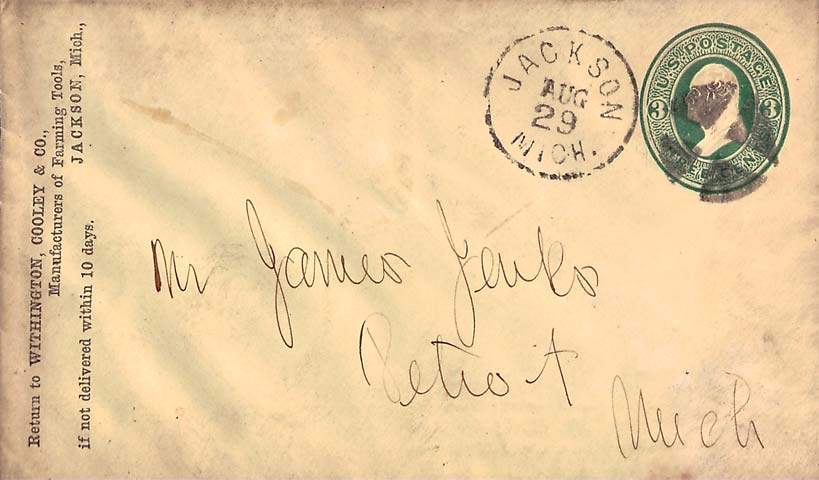 Return to WITHINGTON, COOLEY & CO.,
Manufacturers of Farming Tools,
JACKSON, Mich.,
if not delivered within 10 days.
JACKSON
AUG
29
MICH.
U.S. POSTAGE
3 3
THREE CENTS
Mr James Jenks
Detroit
Mich